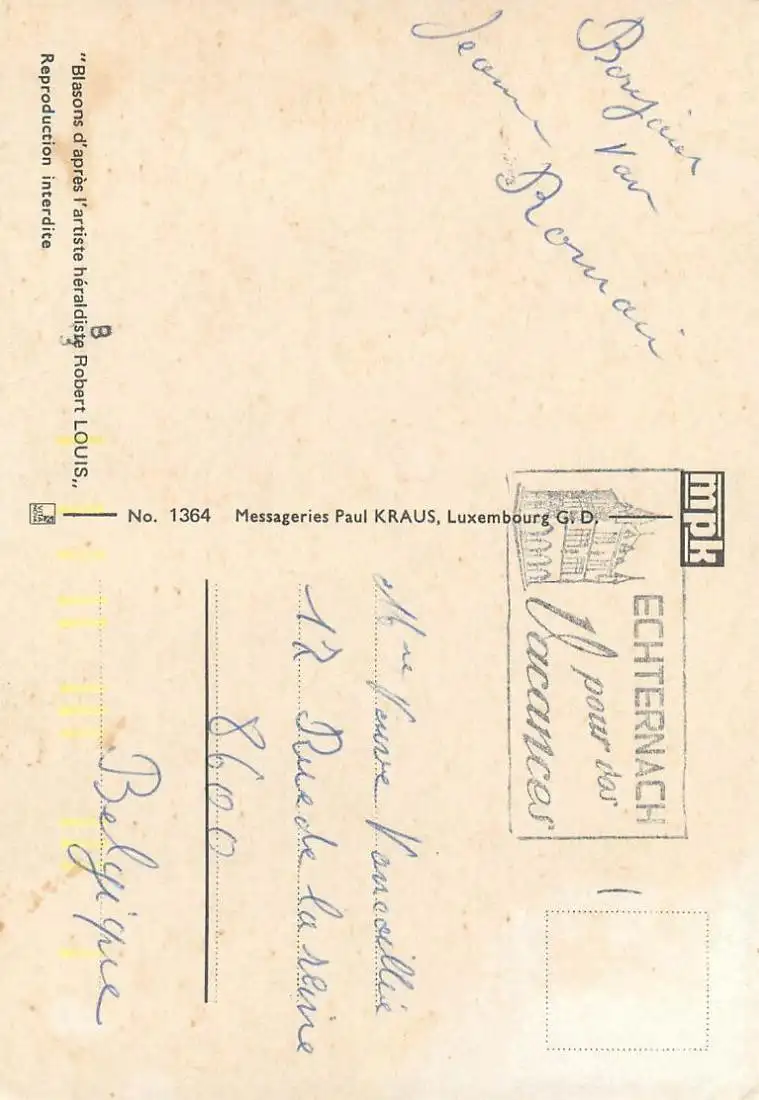 Bonjour
Van
Jeanne Romain
"Blasons d'après l'artiste héraldiste Robert LOUIS„
Reproduction interdite
B
mpk
No. 1364 Messageries Paul KRAUS, Luxembourg G. D.
ECHTERNACH
pour des
Vacances
Mme Veuve
12 Rue de la reine
8600
Belgique